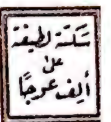 سكتة لطيفة
على
ألف عوجا